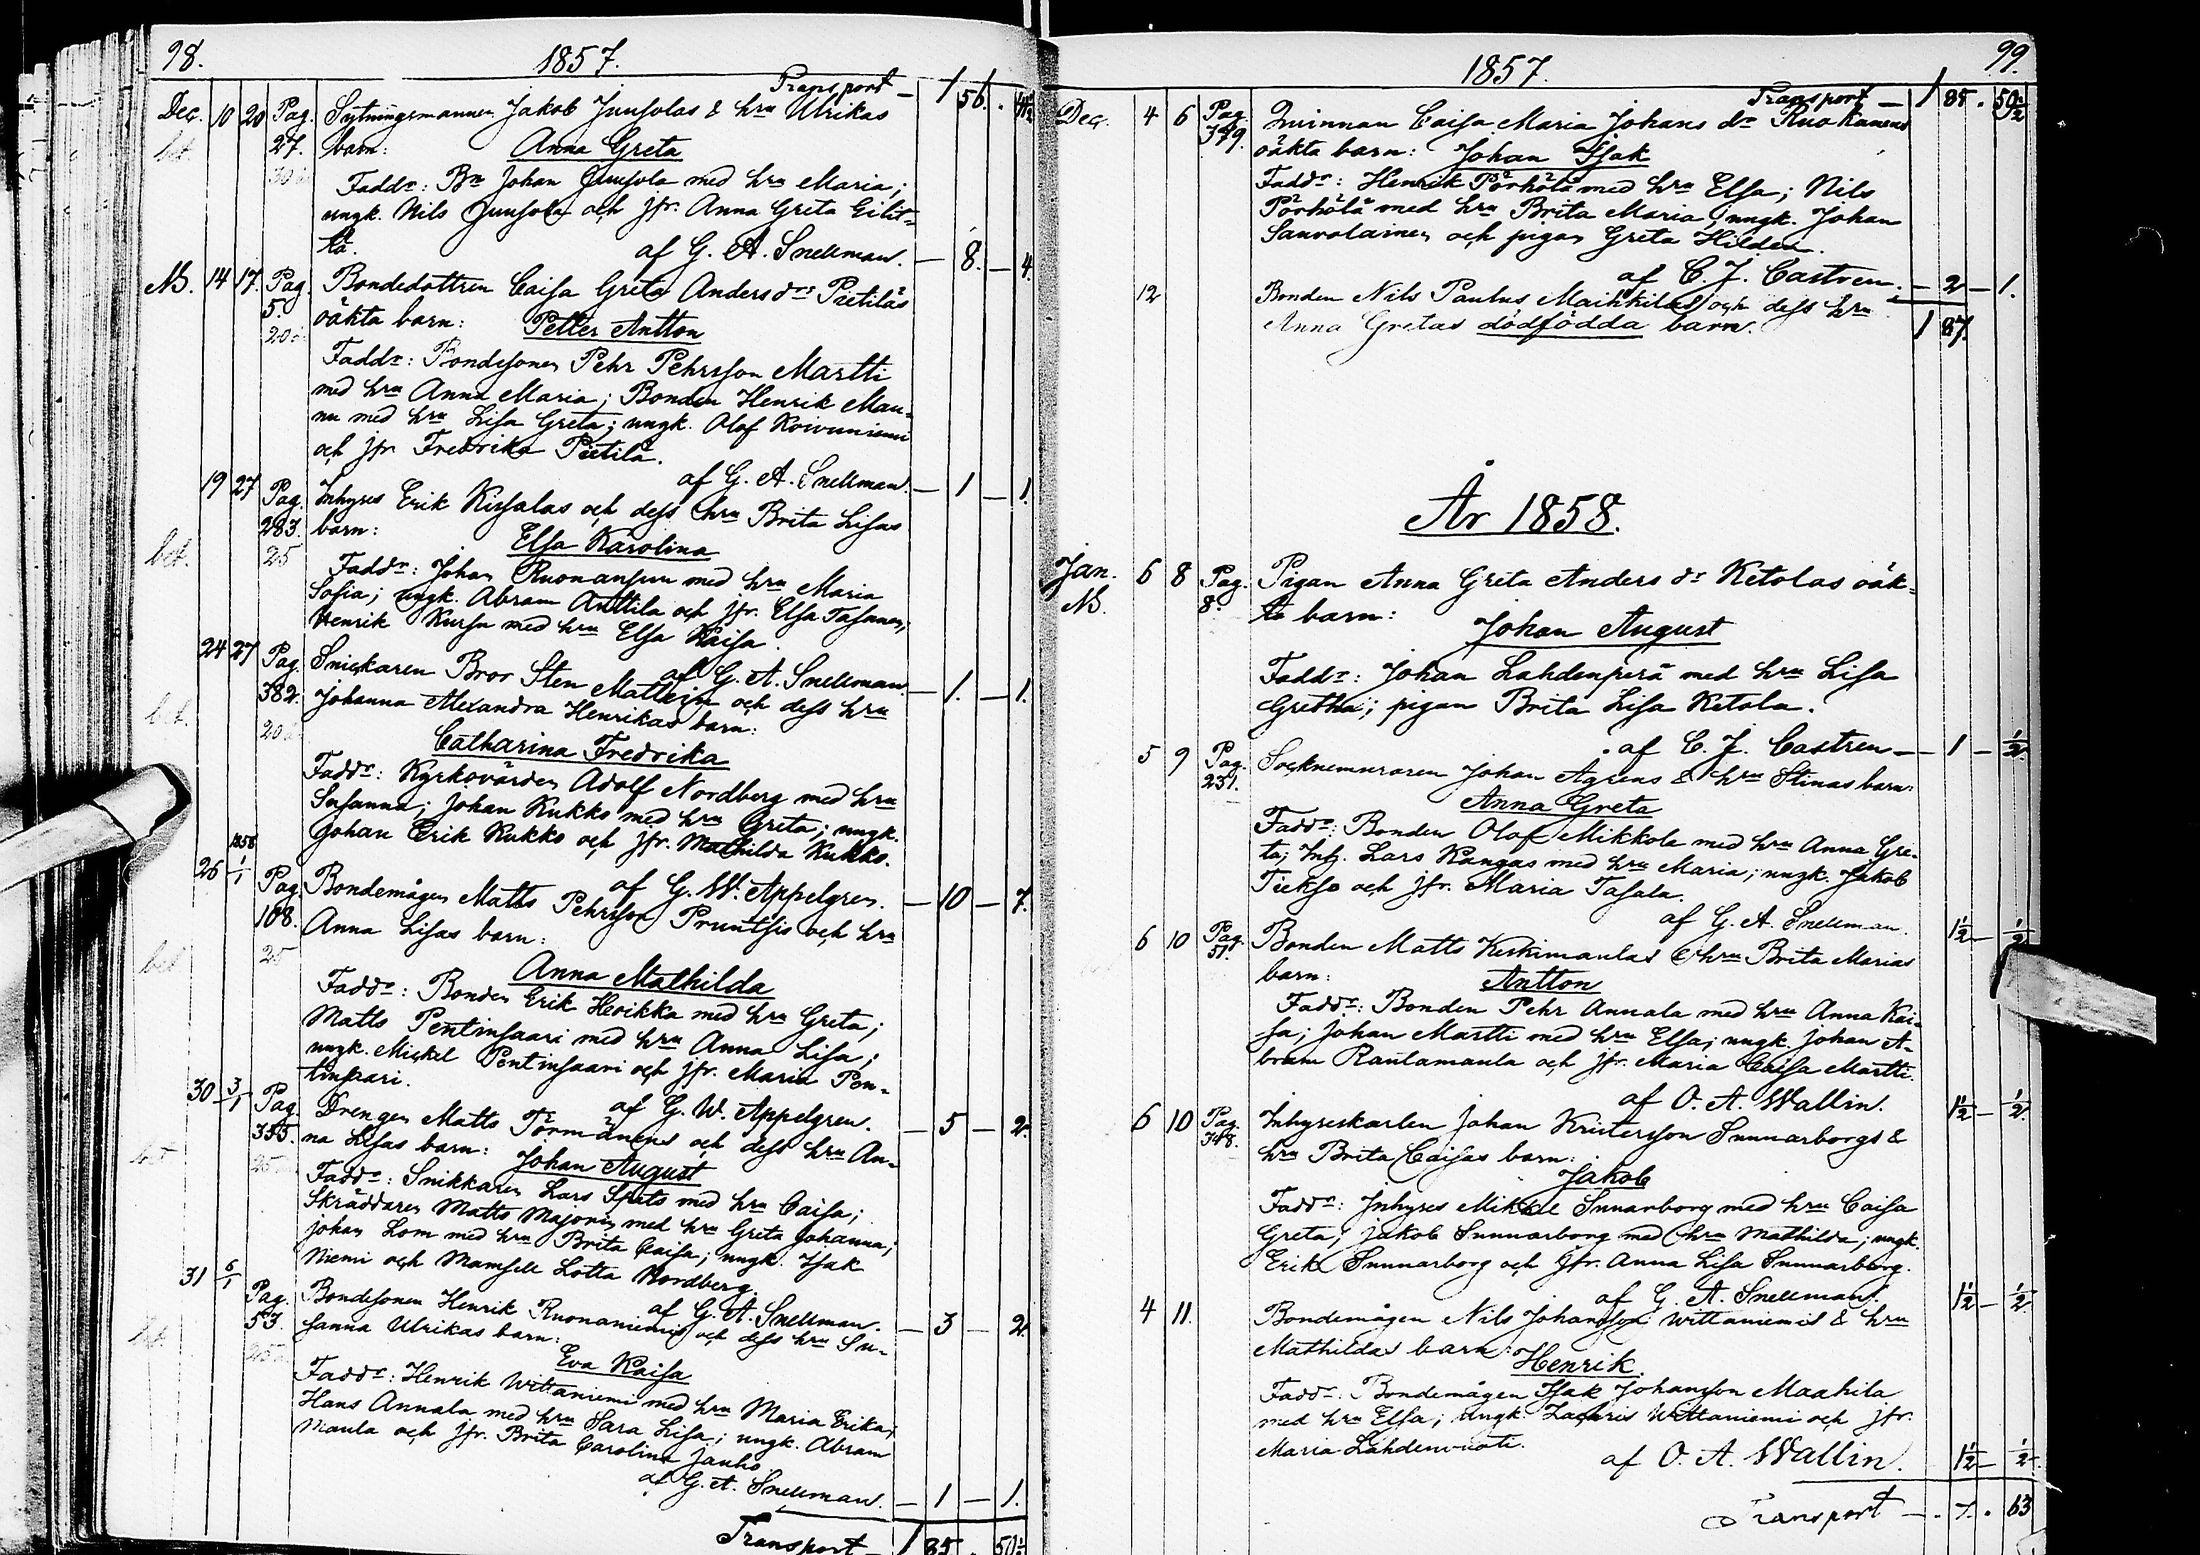 98.
1857.
Transport — 1 56.
Dec. 10 20 Pag. Sytningsmannen Jakob Juusolas & hru Ulrikas
bet. 27. barn: Anna Greta
Fadd.r: Bn Johan Juusola med hru Maria;
ungk. Nils Juusola och jfr. Anna Greta Eilit-
tä.
af G. A. Snellman. — 8. — 4.
NB. 14 17. Pag. Bondedottren Caisa Greta Anders drs Pietiläs
5. oäkta barn: Petter Antton
Fadd.r: Bondesonen Pehr Pehrsson Martti
med hru Anna Maria; Bonden Henrik Mau-
nu med hru Lisa Greta; ungk. Olof Koivuniemi
och jfr Fredrika Pietilä.
af G. A. Snellman. — 1 — 1.
19 27 Pag. Inhyses Erik Kissalas och dess hru Brita Lisas
283. barn:
bet. 25 Elsa Karolina
Fadd.r: Johan Ruonansuu med hru Maria
Sofia; ungk. Abram Anttila och jfr. Elsa Tasanen;
Henrik Kursu med hru Elsa Kaisa.
af G. A. Snellman. — 1. — 1.
24 27 Pag. Snickaren Bror Sten Mattein och dess hru
382. Johanna Alexandra Henrikas barn:
bet. Catharina Fredrika
Fadd.r: Kyrkovärden Adolf Nordberg med hru
Susanna; Johan Kukko med hru Greta; ungk.
Johan Erik Kukko och jfr. Mathilda Kukko.
af G. W. Appelgren. — 10 — 7.
1858
26 1/1 Pag. Bondemågen Matts Pehrsson Pruntsis och hru
108. Anna Lisas barn:
bet 25 Anna Mathilda
Fadd.r: Bonden Erik Heikka med hru Greta;
Matts Pentinsaari med hru Anna Lisa;
ungk. Mickel Pentinsaari och jfr. Maria Pen-
tinsaari.
af G. W. Appelgren. — 5 — 2.
30 3/1 Pag. Drengen Matts Törmänens och dess hru An-
355. na Lisas barn: Johan August
Fadd.r: Snikkaren Lars Spets med hru Caisa;
Skräddaren Matts Majonen med hru Greta Johanna;
Johan Lom med hru Brita Caisa; ungk. Isak
Niemi och Mamsell Lotta Nordberg.
af G. A. Snellman. — 3 — 2.
31 6/1 Pag. Bondesonen Henrik Ruonaniemis och dess hru Su-
53. sanna Ulrikas barn:
Eva Kaisa
Fadd.r: Henrik Wittaniemi med hru Maria Erika;
Hans Annala med hru Sara Lisa; ungk. Abram
Maula och jfr. Brita Carolina Janho.
af G. A. Snellman. — 1 — 1.
Transport — 1 85. 50 1/2
99.
1857.
Transport — 1 85. 50 1/2
Dec. 4 6 Pag. Qvinnan Caisa Maria Johans dr Ruokanens
379. oäkta barn: Johan Isak
Fadd.r: Henrik Pörhölä med hru Elsa; Nils
Pörhölä med hru Brita Maria; ungk. Johan
Sauvolainen och pigan Greta Hilden.
af C. J. Castren. — 2 — 1.
12 Bonden Nils Paulus Maihkilas och dess hru
Anna Gretas dödfödda barn. 1 87.
År 1858.
Jan. 6 8 Pag. Pigan Anna Greta Anders dr Ketolas oäk-
NB. 8. ta barn:
Johan August
Fadd.r: Johan Lahdenperä med hru Lisa
Gretha; pigan Brita Lisa Ketola.
af C. J. Castren — 1 — 1/2
5 9 Pag. Socknemuraren Johan Ågrens & hru Stinas barn:
231. Anna Greta
Fadd.r: Bonden Olof Mikkola med hru Anna Gre-
ta; Inh. Lars Kangas med hru Maria; ungk. Jakob
Tiekso och jfr. Maria Tasala.
af G. A. Snellman. 1 1/2 — 1/2
6 10 Pag. Bonden Matts Keskimaulas & hru Brita Marias
51. barn: Antton
Fadd.r: Bonden Pehr Annala med hru Anna Kai-
sa; Johan Martti med hru Elsa; ungk. Johan A-
bram Rautamaula och jfr. Maria Caisa Martti.
af O. A. Wallin. 1 1/2 — 1/2
6 10 Pag. Inhyseskarlen Johan Kristersson Sunnarborgs &
348. hru Brita Caisas barn:
Jakob
Fadd.r: Inhyses Mikkel Sunnarborg med hru Caisa
Greta; Jakob Sunnarborg med hru Mathilda; ungk.
Erik Sunnarborg och Jfr. Anna Lisa Sunnarborg.
af G. A. Snellman. 1 1/2 — 1/2
4 11. Bondemågen Nils Johansson Wittaniemis & hru
Mathildas barn: Henrik.
Fadd.r: Bondemågen Isak Johansson Maahila
med hru Elsa; ungk. Zachris Wittaniemi och jfr.
Maria Lahdenvuoti.
af O. A. Wallin. 1 1/2 — 1/2
Transport — . 7. . 63